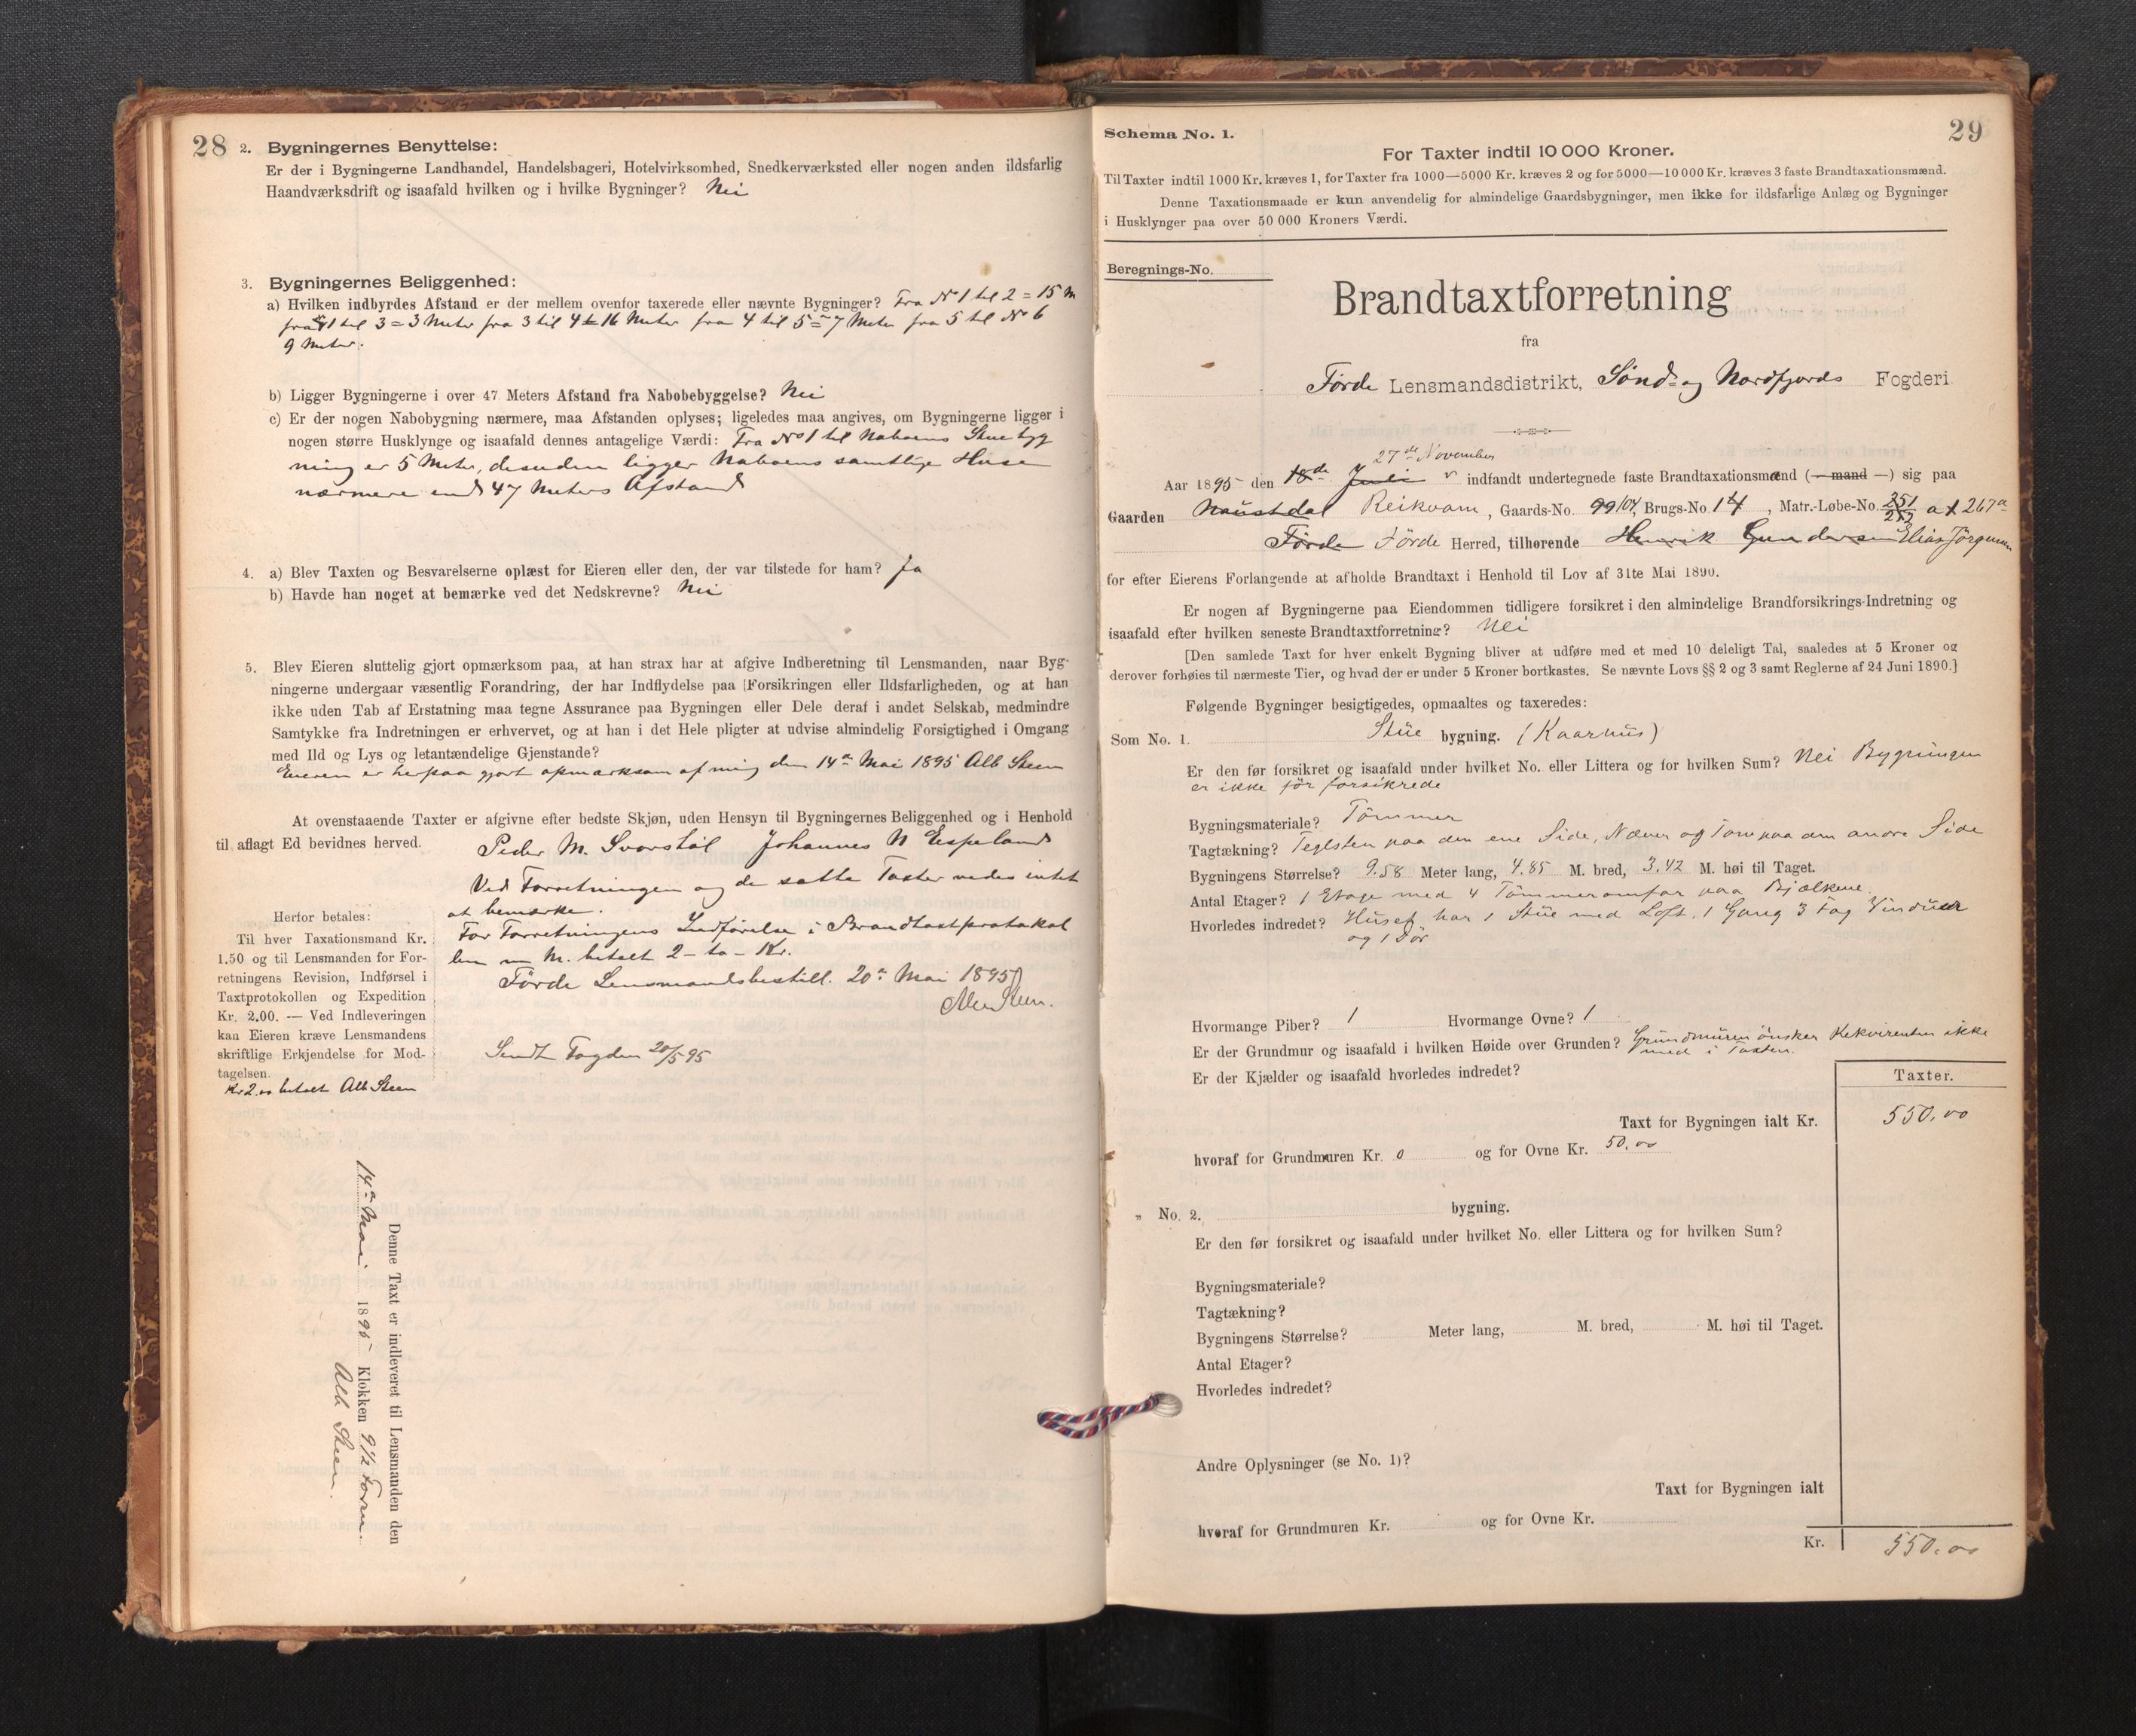 28 2. Bygningernes Benyttelse:
Er der i Bygningerne Landhandel, Handelsbageri, Hotelvirksomhed, Snedkerværksted eller nogen anden ildsfarlig
Haandværksdrift og isaafald hvilken og i hvilke Bygninger? Nei
3. Bygningernes Beliggenhed:
a) Hvilken indbyrdes Afstand er der mellem ovenfor taxerede eller nævnte Bygninger? Fra No 1 til 2 = 15 M
fra 1 til 3 = 3 Meter fra 3 til 4 = 16 Meter fra 4 til 5 = 7 Meter fra 5 til No 6
9 Meter.
b) Ligger Bygningerne i over 47 Meters Afstand fra Nabobebyggelse? Nei
c) Er der nogen Nabobygning nærmere, maa Afstanden oplyses; ligeledes maa angives, om Bygningerne ligger i
nogen større Husklynge og isaafald dennes antagelige Værdi: Fra No 1 til Naboens Stuebyg
ning er 5 Meter, desuden ligger Naboens samtlige Huse
nærmere end 47 Meters Afstand
4. a) Blev Taxten og Besvarelserne oplæst for Eieren eller den, der var tilstede for ham? Ja
b) Havde han noget at bemærke ved det Nedskrevne? Nei
5. Blev Eieren sluttelig gjort opmærksom paa, at han strax har at afgive Indberetning til Lensmanden, naar Byg-
ningerne undergaar væsentlig Forandring, der har Indflydelse paa Forsikringen eller Ildsfarligheden, og at han
ikke uden Tab af Erstatning maa tegne Assurance paa Bygningen eller Dele deraf i andet Selskab, medmindre
Samtykke fra Indretningen er erhvervet, og at han i det Hele pligter at udvise almindelig Forsigtighed i Omgang
med Ild og Lys og letantændelige Gjenstande?
Eieren er herpaa gjort opmærksom af mig den 14de Mai 1895 Alb Steen
At ovenstaaende Taxter er afgivne efter bedste Skjøn, uden Hensyn til Bygningernes Beliggenhed og i Henhold
til aflagt Ed bevidnes herved. Peder M. Svorstøl Johannes N Espeland
Ved Forretningen og de satte Taxter vedes intet
at bemærke.
For Forretningens Indførelse i Brandtaxtprotokol
len m M. betalt 2 - to - Kr.
Førde Lensmandsbestill. 20de Mai 1895
Alb Steen.
Sendt Fogden 20/5 95
Herfor betales:
Til hver Taxationsmand Kr.
1.50 og til Lensmanden for For-
retningens Revision, Indførsel i
Taxtprotokollen og Expedition
Kr. 2.00. — Ved Indleveringen
kan Eieren kræve Lensmandens
skriftlige Erkjendelse for Mod-
tagelsen.
Kr 2.00 betalt Alb Steen
Denne Taxt er indleveret til Lensmanden den
14de Mai 1895 Klokken 9 1/2 Form.
Alb Steen.
Schema No. 1. 29
For Taxter indtil 10 000 Kroner.
Til Taxter indtil 1000 Kr. kræves 1, for Taxter fra 1000—5000 Kr. kræves 2 og for 5000—10 000 Kr. kræves 3 faste Brandtaxationsmænd.
Denne Taxationsmaade er kun anvendelig for almindelige Gaardsbygninger, men ikke for ildsfarlige Anlæg og Bygninger
i Husklynger paa over 50 000 Kroners Værdi.
Beregnings-No.
Brandtaxtforretning
fra
Førde Lensmandsdistrikt, Sønd- og Nordfjords Fogderi
27de November
Aar 1895 den 18de Juli indfandt undertegnede faste Brandtaxationsmænd (— mand —) sig paa
Gaarden Naustdal Reikvam, Gaards-No. 99 104, Brugs-No. 1 4, Matr.-Løbe-No. 251/252 a 1 267a
Førde Førde Herred, tilhørende Henrik Gundersen Elias Jörgensen
for efter Eierens Forlangende at afholde Brandtaxt i Henhold til Lov af 31te Mai 1890.
Er nogen af Bygningerne paa Eiendommen tidligere forsikret i den almindelige Brandforsikrings-Indretning og
isaafald efter hvilken seneste Brandtaxtforretning? Nei
[Den samlede Taxt for hver enkelt Bygning bliver at udføre med et med 10 deleligt Tal, saaledes at 5 Kroner og
derover forhøies til nærmeste Tier, og hvad der er under 5 Kroner bortkastes. Se nævnte Lovs §§ 2 og 3 samt Reglerne af 24 Juni 1890.]
Følgende Bygninger besigtigedes, opmaaltes og taxeredes:
Som No. 1. Stue bygning. (Kaarhus)
Er den før forsikret og isaafald under hvilket No. eller Littera og for hvilken Sum? Nei Bygningen
er ikke før forsikrede
Bygningsmateriale? Tömmer
Tagtækning? Teglsten paa den ene Side, Næver og Torv paa den andre Side
Bygningens Størrelse? 9.58 Meter lang, 4.85 M. bred, 3.42 M. høi til Taget.
Antal Etager? 1 Etage med 4 Tömmeromfar paa Bjælkene
Hvorledes indredet? Huset har 1 Stue med Loft, 1 Gang 3 Fag Vinduer
og 1 Dør
Hvormange Piber? 1 Hvormange Ovne? 1
Er der Grundmur og isaafald i hvilken Høide over Grunden? Grundmuren ønsker Rekvirenten ikke
med i Taxten.
Er der Kjælder og isaafald hvorledes indredet?
Taxter.
Taxt for Bygningen ialt Kr. 550.00
hvoraf for Grundmuren Kr. 0 og for Ovne Kr. 50.00
" No. 2. bygning.
Er den før forsikret og isaafald under hvilket No. eller Littera og for hvilken Sum?
Bygningsmateriale?
Tagtækning?
Bygningens Størrelse? Meter lang, M. bred, M. høi til Taget.
Antal Etager?
Hvorledes indredet?
Andre Oplysninger (se No. 1)?
Taxt for Bygningen ialt
hvoraf for Grundmuren Kr. og for Ovne Kr.
Kr. 550.00